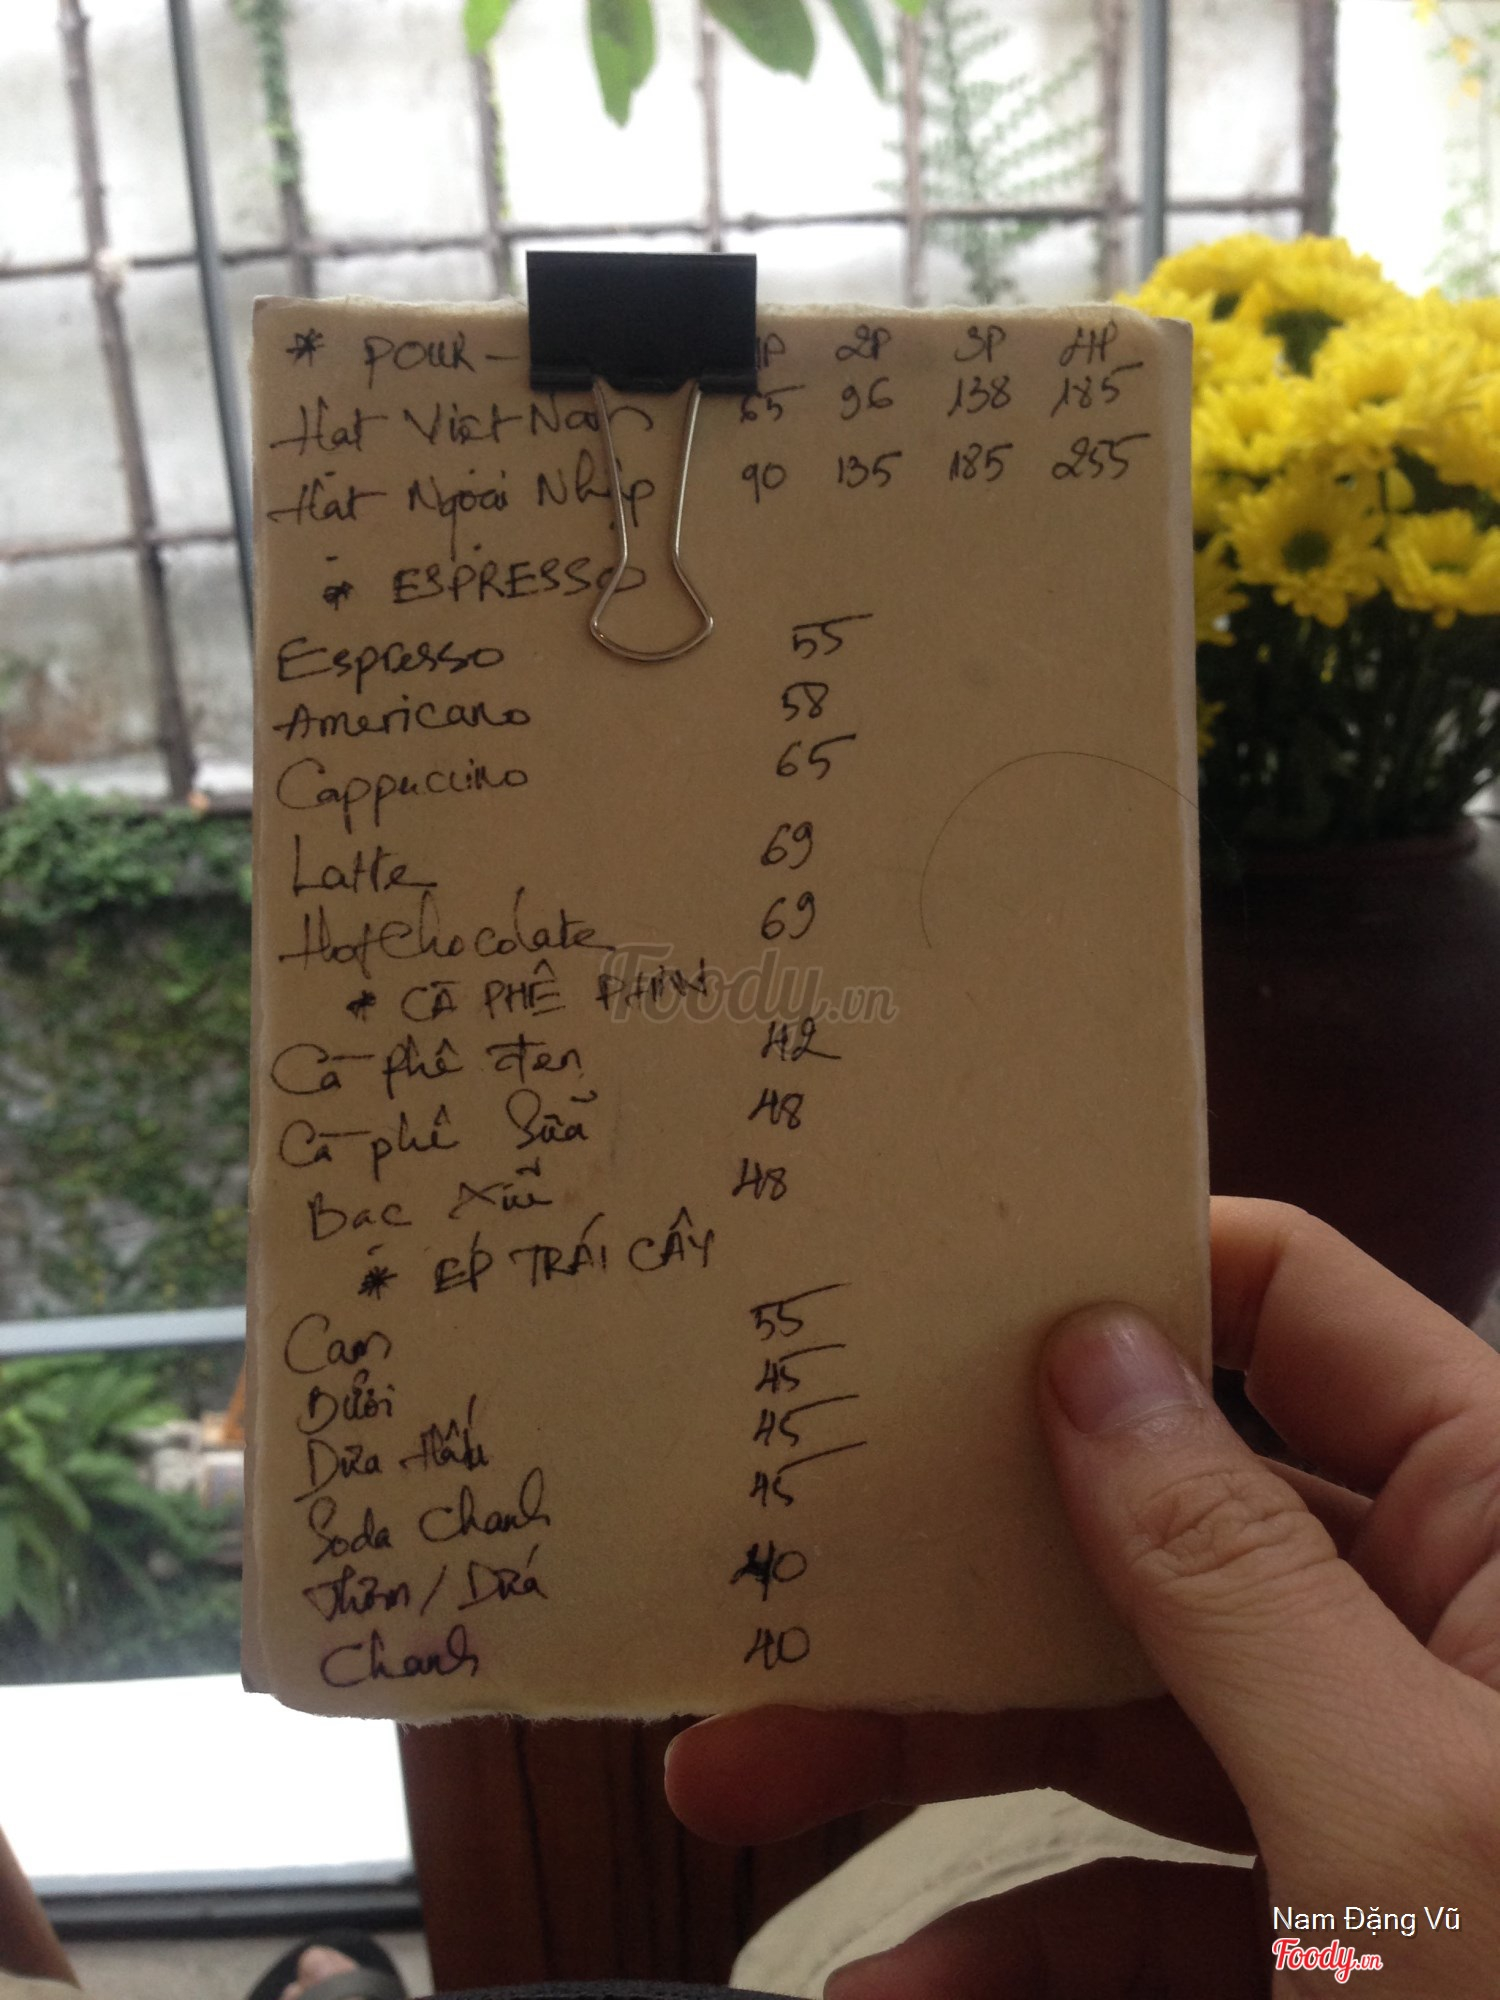 * POUR - 1P 2P 3P 4P
Hạt Việt Nam 65 96 138 185
Hạt Ngoại Nhập 90 135 185 255
* ESPRESSO
Espresso 55
Americano 58
Cappuccino 65
Latte 69
Hot Chocolate 69
* CÀ PHÊ PHIN
Cà phê đen 42
Cà phê Sữa 48
Bạc Xỉu 48
* ÉP TRÁI CÂY
Cam 55
Bưởi 45
Dưa Hấu 45
Soda Chanh 45
Thơm / Dứa 40
Chanh 40
Foody.vn
Nam Đặng Vũ
Foody.vn